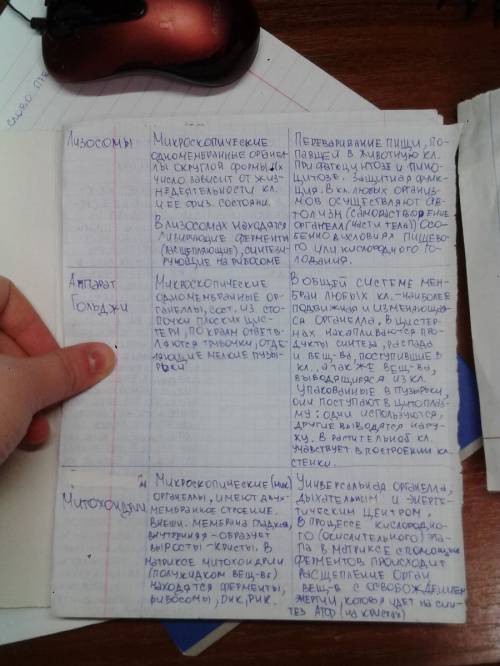 слово
Лизосомы
Микроскопические
одномембранные органел-
лы округлой формы. Их
число зависит от жиз-
недеятельности кл.
и ее физ. состояни.
В лизосомах находятся
лизирующие ферменты
(расщепляющие), синтези-
рующие на рибосоме
Переваривание пищи, по-
павшей в животную кл.
при фагоцитозе и пино-
цитозе. Защитная функ-
ция. В кл. любых организ-
мов осуществляют ав-
толизм (саморастворение
органелл (части тела)) осо-
бенно в условиях пищево-
го или кислородного го-
лодания.
Аппарат
Гольджи
Микроскопические
одномембранные ор-
ганеллы, сост. из сто-
почки плоских цис-
терн, по краям ответв-
ляются трубочки, отде-
ляющие мелкие пузы-
рьки
В общей системе мем-
бран любых кл. - наиболее
подвижная и изменяюща-
яся органелла. В цистер-
нах накапливаются про-
дукты синтеза, распада
и вещ-ва, поступившие в
кл., а так же вещ-ва,
выводящиеся из кл.
Упакованные в пузырьки,
они поступают в цитоплаз-
му: одни используются,
другие выводятся нару-
жу. В растительной кл.
учавствует в построении кл.
стенки.
Митохондрии
Микроскопические
органеллы, имеют двух-
мембранное строение.
Внешн. мембрана гладкая,
внутренняя - образует
выросты - кристы. В
матриксе митохондрии
(полужидком вещ-ве)
находятся ферменты,
рибосомы, ДНК, РНК.
Универсальная органелла,
дыхательным и энерге-
тическим центром.
В процессе кислородно-
го (окислительного) эта-
па в матриксе с помощью
ферментов происходит
расщепление орган
вещ-в с освобождением
энергии, которая идет на син-
тез АТФ (на кристах)